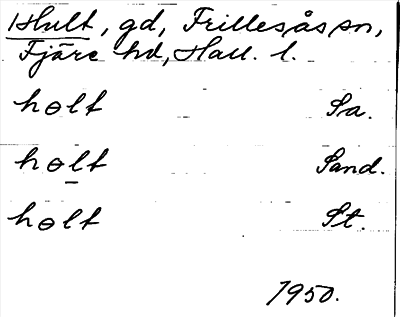 Hult, gd, Frillesås sn,
Fjäre hd, Hall. l.
hɵlt Sa.
hɵl̲t Sand.
hɵlt St.
1950.